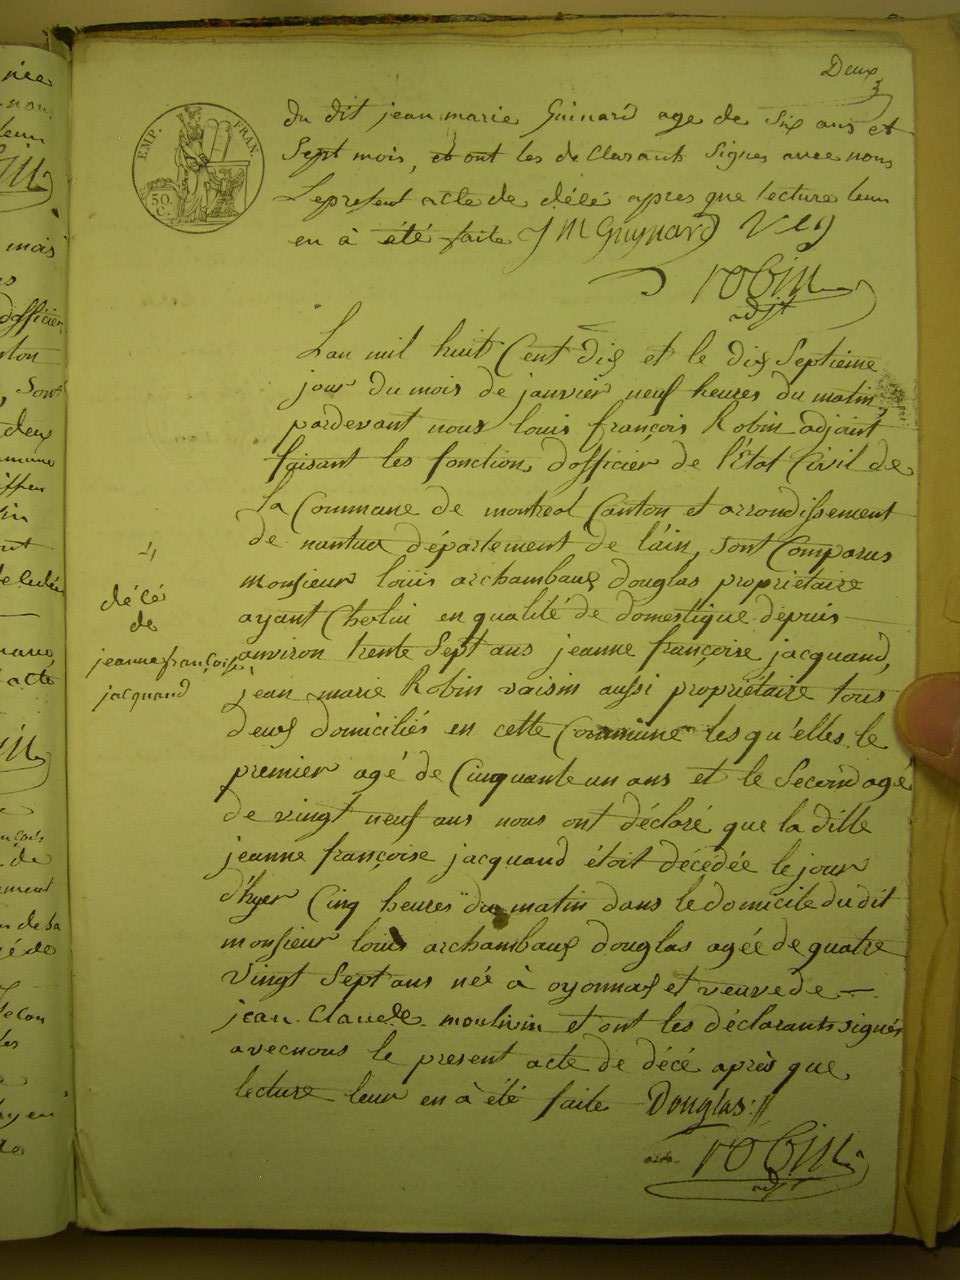 Deux
EMP. FRAN.
50. C.
du dit jean marie Guinard age de Six ans et
Sept mois, et ont les declarants signes avec nous
Le present acte de décé apres que lecture leur
en à été faite J M Guynard
robin
adjt
Lan mil huit Cent dix et le dix Septieme
jour du mois de janvier neuf heures du matin
pardevant nous louis françois Robin adjoint
faisant les fonction dofficier de l'État Civil de
la Commune de montreal Canton et arrondissement
de nantua département de l'ain, sont Comparus
monsieur louis archambaux douglas propriétaire
ayant Chez lui en qualité de domestique dépuis
anviron trente Sept ans jeanne françoise jacquand,
jean marie Robin vaisin aussi propriétaire tous
deux domiciliés en cette Commune lesqu'elles le
premier agé de Cinquante un ans et le Second agé
de vingt neuf ans nous ont déclaré que la ditte
jeanne françoise jacquand étoit décédée le jour
d'hyer Cinq heures du matin dans le domicile du dit
monsieur louis archambaux douglas agée de quatre
vingt Sept ans née à oyonnax et veuve de
jean Claude moulinin et ont les déclarants signés
avec nous le present acte de décé après que
lecture leur en à été faite Douglas
robin
adjt
4
décé
de
jeanne françoise
jacquand